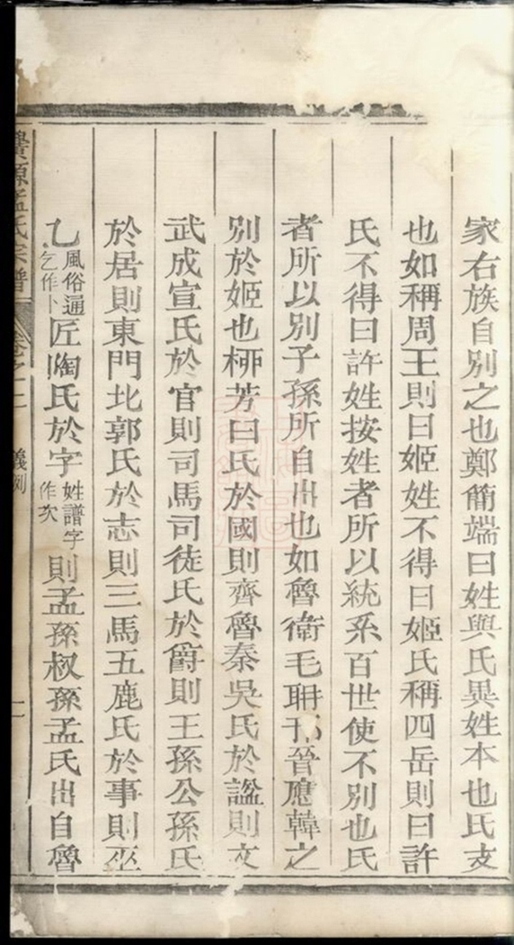 家右族自別之也鄭簡端曰姓與氏異姓本也氏支
也如稱周王則曰姬姓不得曰姬氏稱四岳則曰許
氏不得曰許姓按姓者所以統系百世使不別也氏
者所以別子孫所自出也如魯衛毛聃邘晉應韓之
別於姬也栁芳曰氏於國則齊魯秦吳氏於諡則文
武成宣氏於官則司馬司徒氏於爵則王孫公孫氏
於居則東門北郭氏於志則三馬五鹿氏於事則巫
乙風俗通乞作卜匠陶氏於字姓譜字作次則孟孫叔孫孟氏出自魯
源孟氏宗譜 卷之一 義例 二